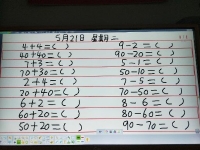 5月21日 星期二
4+4=( ) 9-2=( )
40+40=( ) 90-20=( )
7+3=( ) 5-1=( )
70+30=( ) 50-10=( )
2+4=( ) 7-5=( )
20+40=( ) 70-50=( )
6+2=( ) 8-6=( )
60+20=( ) 80-60=( )
50+20=( ) 90-70=( )